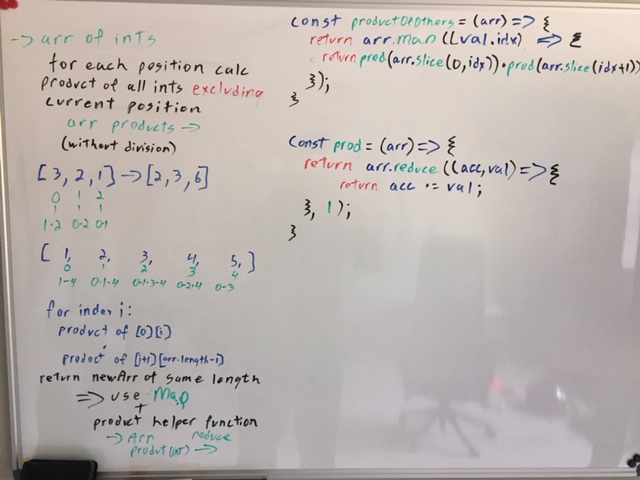 -> arr of ints
for each position calc
product of all ints excluding
current position
arr products ->
(without division)
[3, 2, 1] -> [2, 3, 6]
0 1 2
1·2 0·2 0·1
[ 1, 2, 3, 4, 5, ]
0 1 2 3 4
1-4 0·1-4 0·1·3·4 0-2·4 0-3
for index i:
product of [0][i]
product of [i+1][arr.length-1]
return newArr of same length
=> use Map
+
product helper function
-> Arr reduce
produt(arr) ->
const productOfOthers = (arr) => {
return arr.map((val.idx) => {
return prod(arr.slice(0,idx))·prod(arr.slice(idx+1))
});
}
const prod = (arr) => {
return arr.reduce((acc,val) => {
return acc *= val;
}, 1);
}